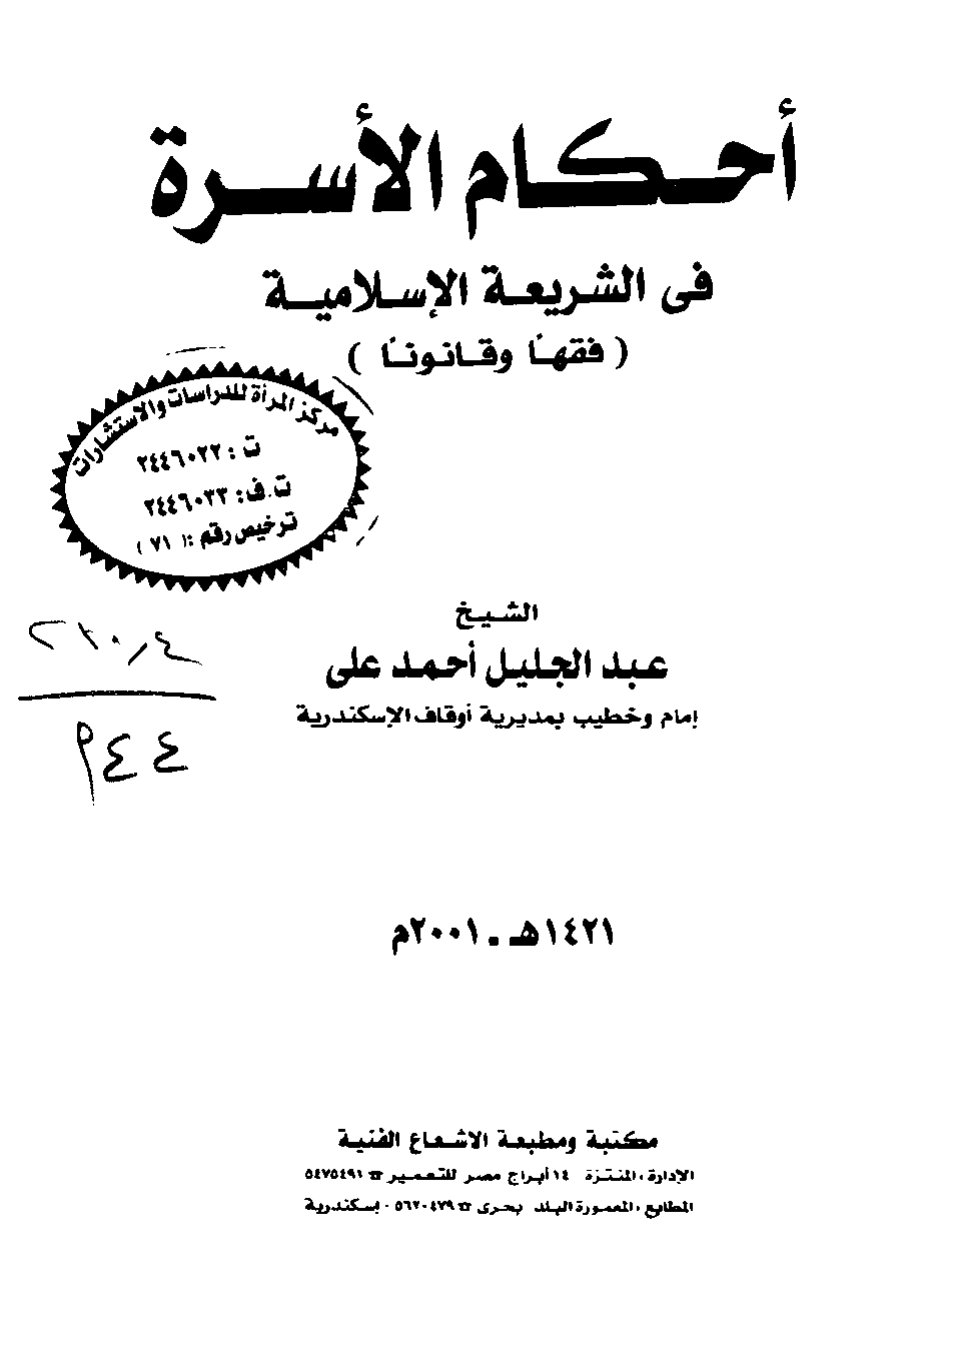 أحكام الأسرة
فى الشريعة الإسلامية
( فقهاً وقانوناً )
مركز المرأة للدراسات والاستشارات
ت : ٢٤٤٦٠٢٢
ت.ف: ٢٤٤٦٠٣٣
ترخيص رقم :( ٧١ )
الشيخ
عبد الجليل أحمد على
إمام وخطيب بمديرية أوقاف الإسكندرية
٩٤٤
١٤٢١هـ - ٢٠٠١م
مكتبة ومطبعة الاشعاع الفنية
الإدارة ، المنتزة ١٤ أبراج مصر للتعمير ☎ ٥٤٧٥٤٩٦
المطابع ، المعمورة البلد بحرى ☎ ٥٦٢٠٤٧٩ - بسكندرية